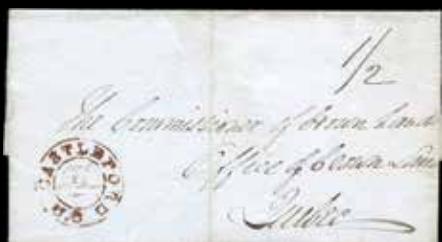 1/2
The Commissioner of Crown Lands
Office of Crown Lands
Quebec
CASTLEFORD